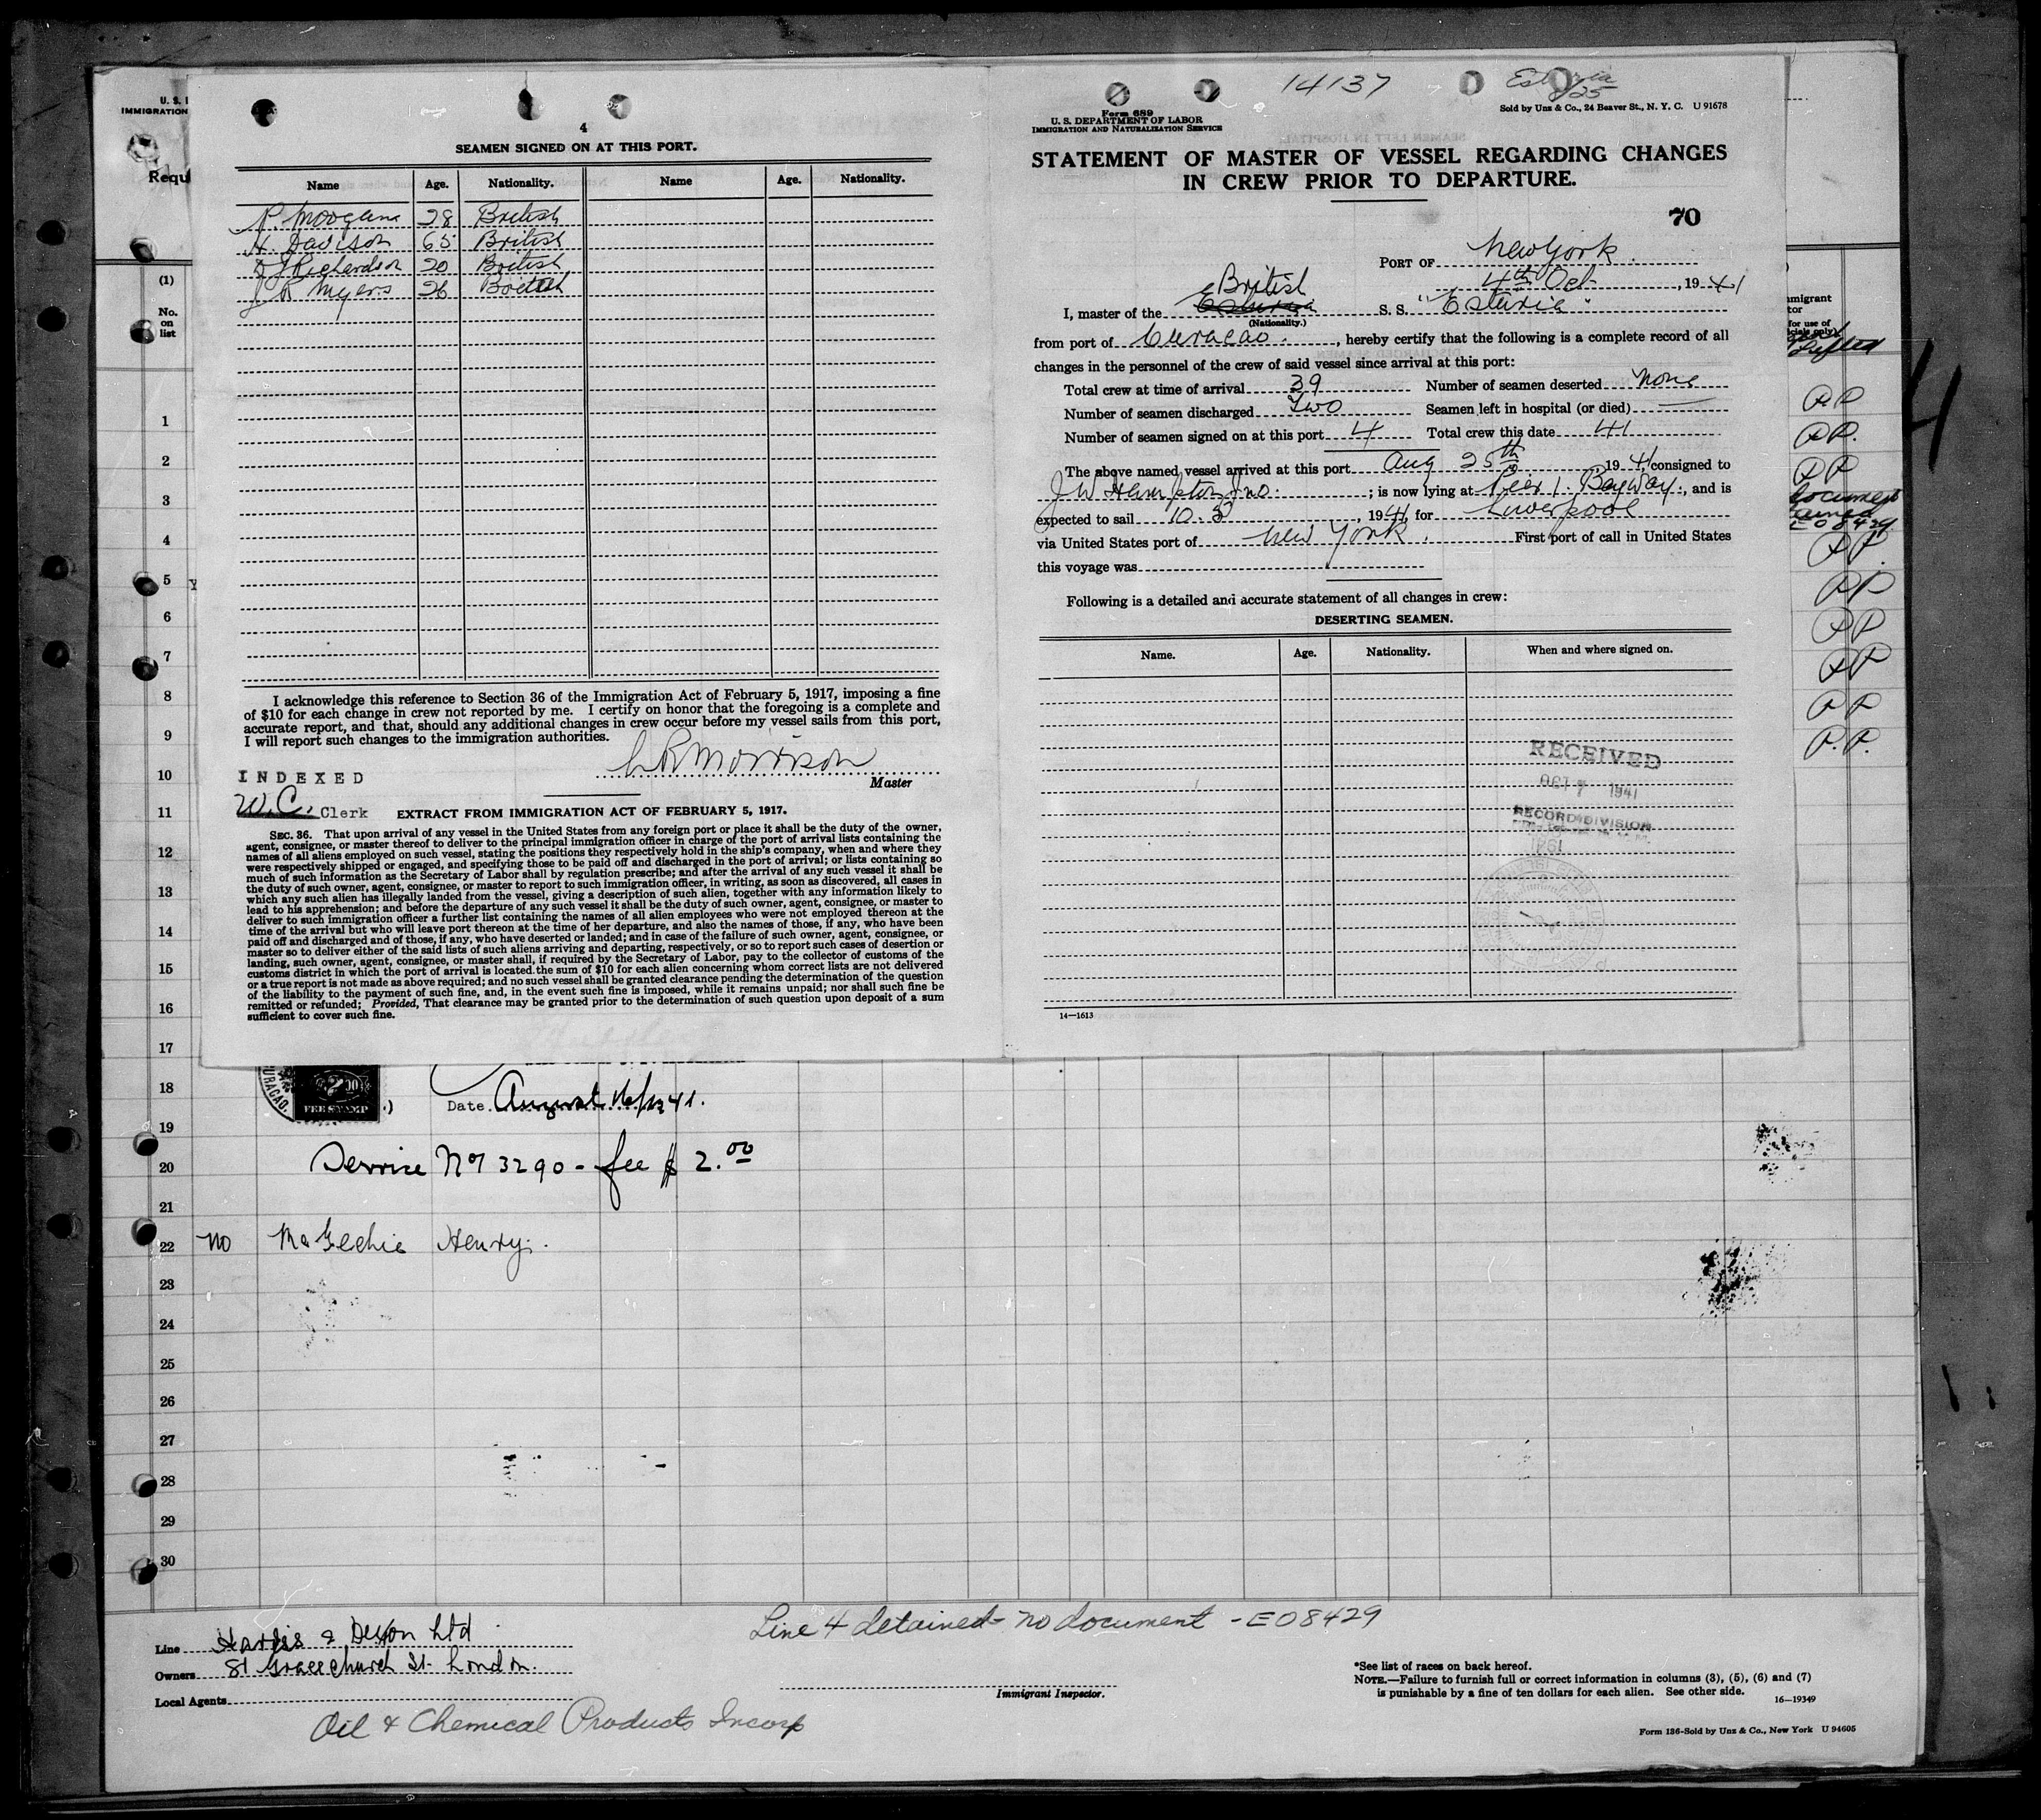 U. S. I
IMMIGRATION
Requ
(1)
No.
on
list
4
SEAMEN SIGNED ON AT THIS PORT.
Name Age. Nationality. Name Age. Nationality.
28 British
H. Davison 65 British
Richardson 20 British
J R Myers 26 British
I acknowledge this reference to Section 36 of the Immigration Act of February 5, 1917, imposing a fine
of $10 for each change in crew not reported by me. I certify on honor that the foregoing is a complete and
accurate report, and that, should any additional changes in crew occur before my vessel sails from this port,
I will report such changes to the immigration authorities.
Morrison
Master
INDEXED
W.C. Clerk
EXTRACT FROM IMMIGRATION ACT OF FEBRUARY 5, 1917.
SEC. 36. That upon arrival of any vessel in the United States from any foreign port or place it shall be the duty of the owner,
agent, consignee, or master thereof to deliver to the principal immigration officer in charge of the port of arrival lists containing the
names of all aliens employed on such vessel, stating the positions they respectively hold in the ship's company, when and where they
were respectively shipped or engaged, and specifying those to be paid off and discharged in the port of arrival; or lists containing so
much of such information as the Secretary of Labor shall by regulation prescribe; and after the arrival of any such vessel it shall be
the duty of such owner, agent, consignee, or master to report to such immigration officer, in writing, as soon as discovered, all cases in
which any such alien has illegally landed from the vessel, giving a description of such alien, together with any information likely to
lead to his apprehension; and before the departure of any such vessel it shall be the duty of such owner, agent, consignee, or master to
deliver to such immigration officer a further list containing the names of all alien employees who were not employed thereon at the
time of the arrival but who will leave port thereon at the time of her departure, and also the names of those, if any, who have been
paid off and discharged and of those, if any, who have deserted or landed; and in case of the failure of such owner, agent, consignee, or
master so to deliver either of the said lists of such aliens arriving and departing, respectively, or so to report such cases of desertion or
landing, such owner, agent, consignee, or master shall, if required by the Secretary of Labor, pay to the collector of customs of the
customs district in which the port of arrival is located the sum of $10 for each alien concerning whom correct lists are not delivered
or a true report is not made as above required; and no such vessel shall be granted clearance pending the determination of the question
of the liability to the payment of such fine, and, in the event such fine is imposed, while it remains unpaid; nor shall such fine be
remitted or refunded; Provided, That clearance may be granted prior to the determination of such question upon deposit of a sum
sufficient to cover such fine.
14137
8/25
Form 689
U. S. DEPARTMENT OF LABOR
IMMIGRATION AND NATURALIZATION SERVICE
Sold by Unz & Co., 24 Beaver St., N. Y. C. U 91678
STATEMENT OF MASTER OF VESSEL REGARDING CHANGES
IN CREW PRIOR TO DEPARTURE.
70
PORT OF New York
4th Oct, 1941
British
I, master of the S. S. "Esturia"
(Nationality.)
from port of Curacao, hereby certify that the following is a complete record of all
changes in the personnel of the crew of said vessel since arrival at this port:
Total crew at time of arrival 39 Number of seamen deserted None
Number of seamen discharged Two Seamen left in hospital (or died)
Number of seamen signed on at this port 4 Total crew this date 41
The above named vessel arrived at this port Aug 25th 1941, consigned to
J W Hampton Jno. ; is now lying at Pier 1. Bayway, and is
expected to sail 10.5, 1941, for Liverpool
via United States port of New York. First port of call in United States
this voyage was
Following is a detailed and accurate statement of all changes in crew:
DESERTING SEAMEN.
Name. Age. Nationality. When and where signed on.
RECEIVED
OCT 7 1941
RECORD DIVISION
14—1613
migrant
tor
for use of
4
PP
PP.
PP
document
E08429
PP.
PP
PP
PP
PP
P.P.
1
2
3
4
5
6
7
8
9
10
11
12
13
14
15
16
17
18
19
20
21
22
23
24
25
26
27
28
29
30
CURACAO.
$2.00
FEE STAMP
Date August 16/1941.
Service No 3290 - fee $ 2.00
no McGechie Henry.
Line Harris & Dixon Ltd
Owners 81 Gracechurch St. London.
Local Agents
Oil & Chemical Products Incorp
Line 4 detained - no document - E08429
Immigrant Inspector.
*See list of races on back hereof.
NOTE.—Failure to furnish full or correct information in columns (3), (5), (6) and (7)
is punishable by a fine of ten dollars for each alien. See other side.
16—19349
Form 136-Sold by Unz & Co., New York U 94605